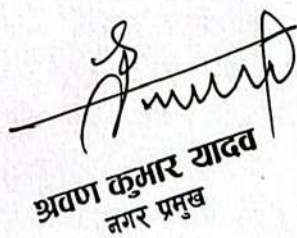 श्रवण कुमार यादव
नगर प्रमुख